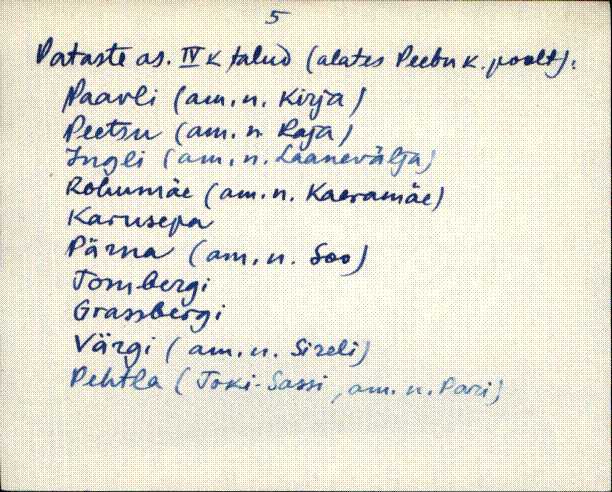 5
Pataste as. IV k talud (alates Peebu k. poolt):
Paavli (am. n. Kirja)
Peetsu (am. n. Raja)
Ingli (am. n. Laanevälja)
Rohumäe (am. n. Kaeramäe)
Karusepa
Pärna (am. n. Soo)
Tombergi
Grassbergi
Värgi (am. n. Sireli)
Pehtla (Joki-Sassi, am. n. Pari)